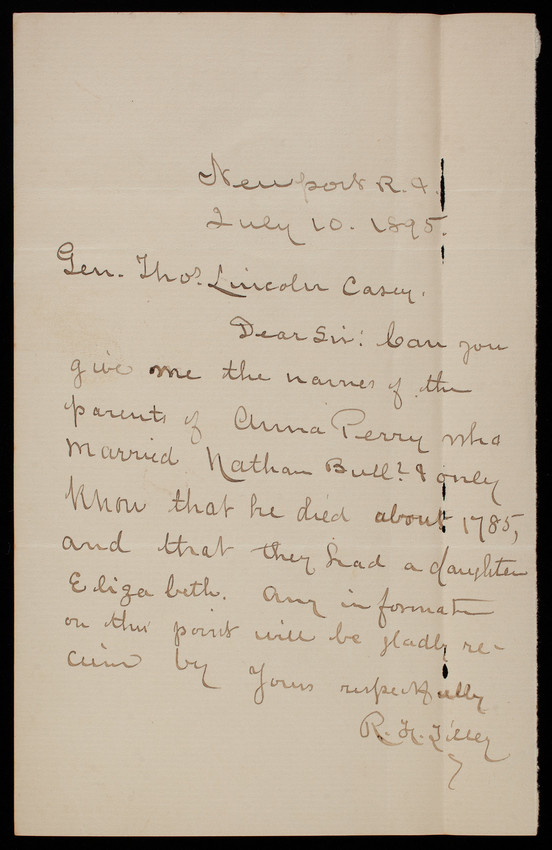 Newport R.I.
July 10. 1895.
Gen. Thos. Lincoln Casey.
Dear Sir: Can you
give me the names of the
parents of Anna Perry who
married Nathan Bull? I only
know that he died about 1785,
and that they had a daughter
Elizabeth. Any information
on this point will be gladly re-
ceived by Yours respectfully
R. H. Tilley